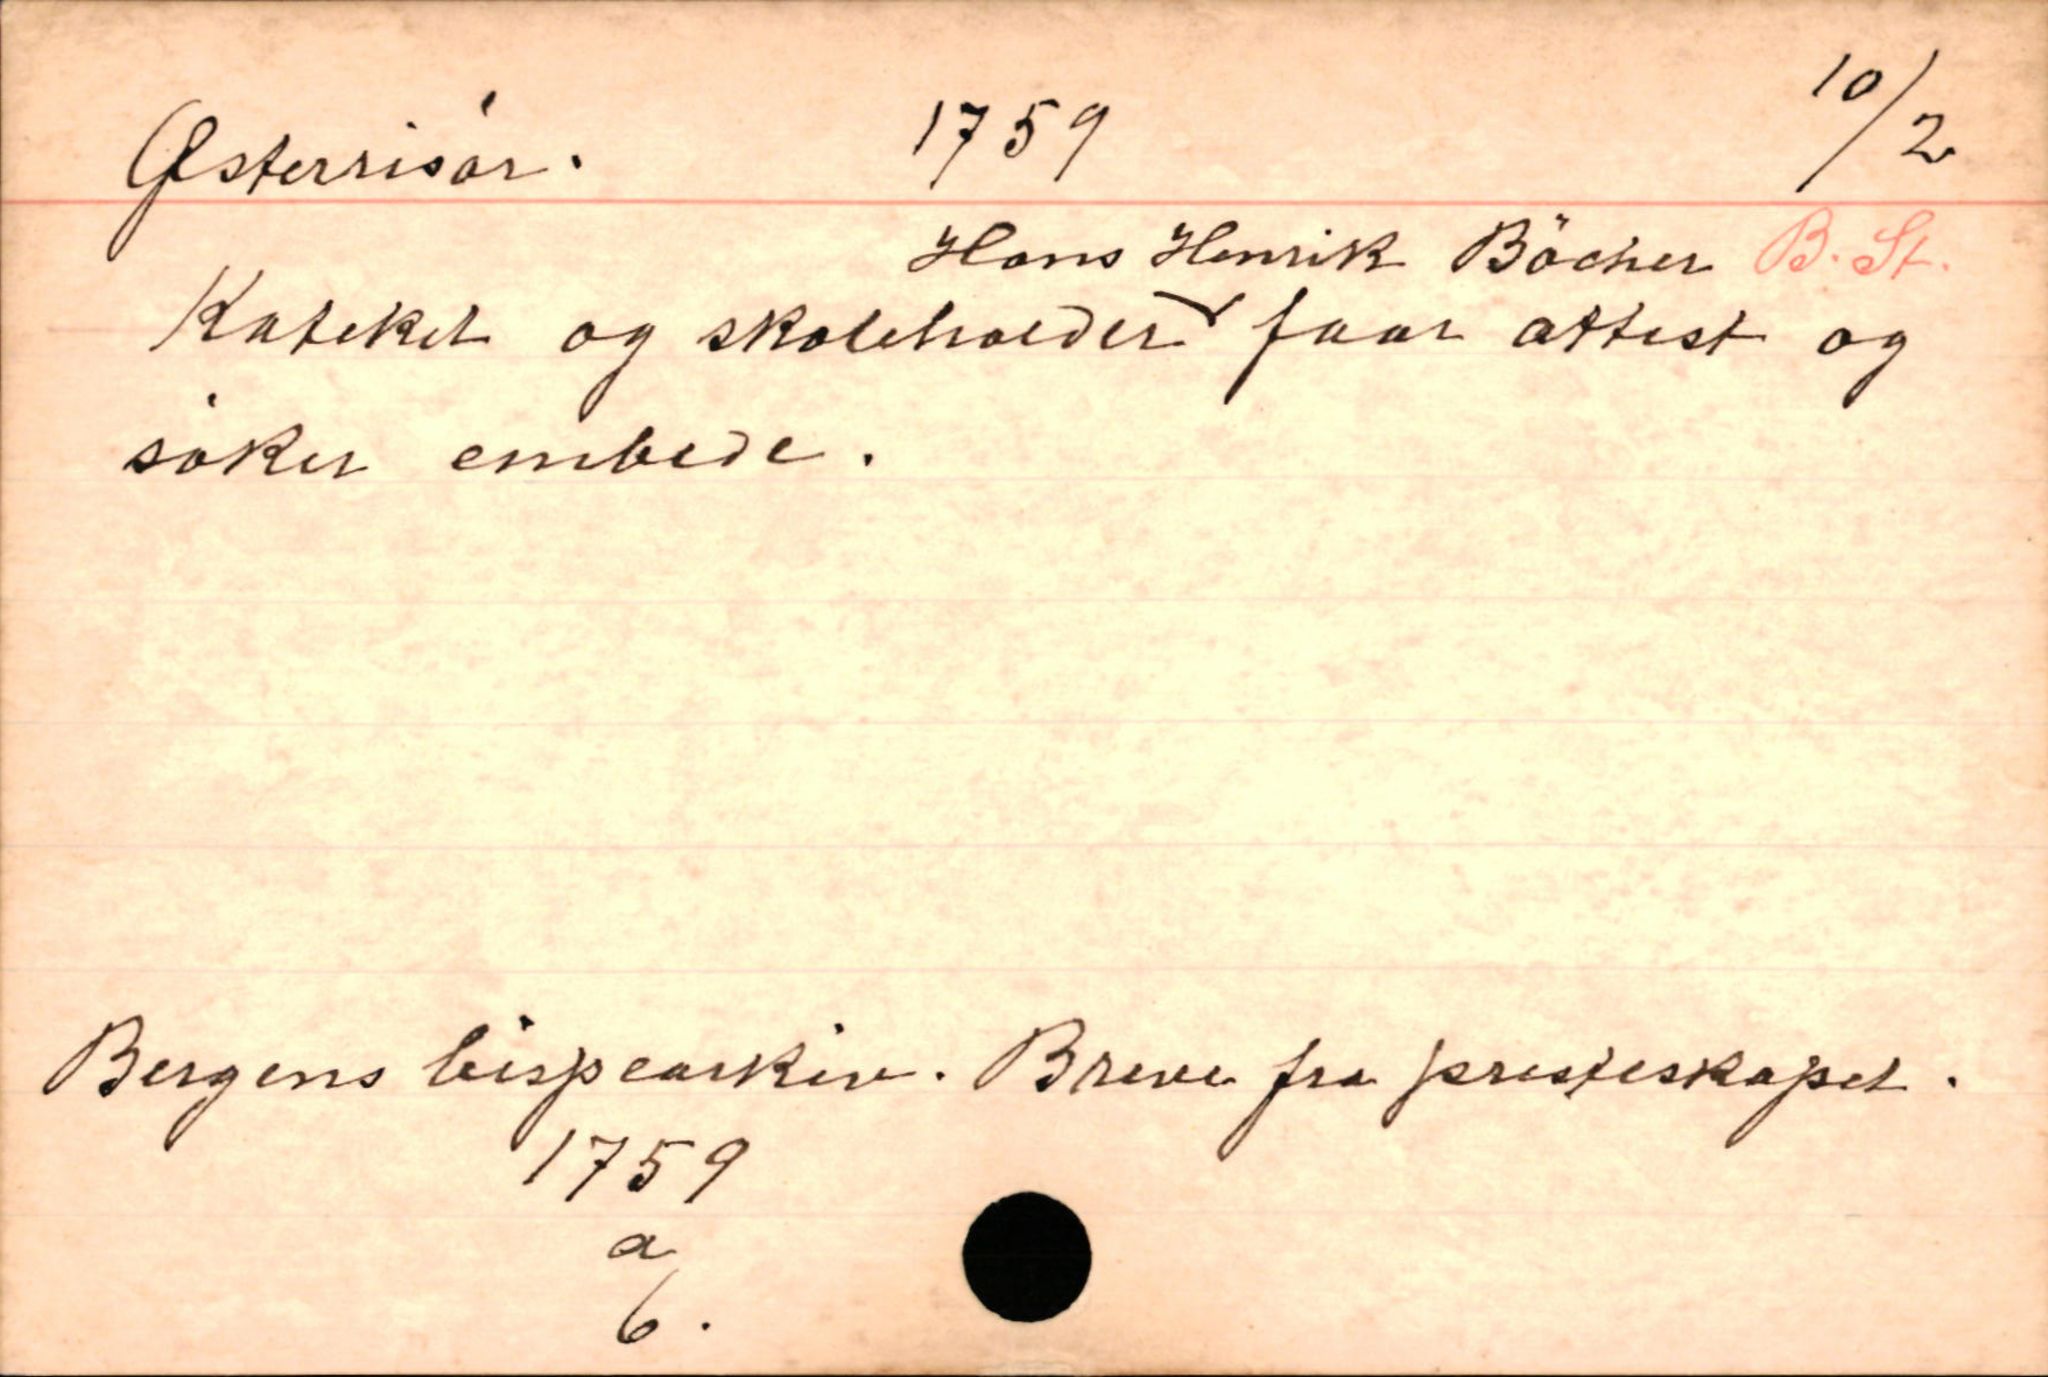 Østerrisör. 1759 10/2
Hans Henrik Böcher B. St.
Kateket og skoleholder faar attest og
söker embede.
Bergens bispearkiv. Breve fra presteskapet.
1759
a
6.